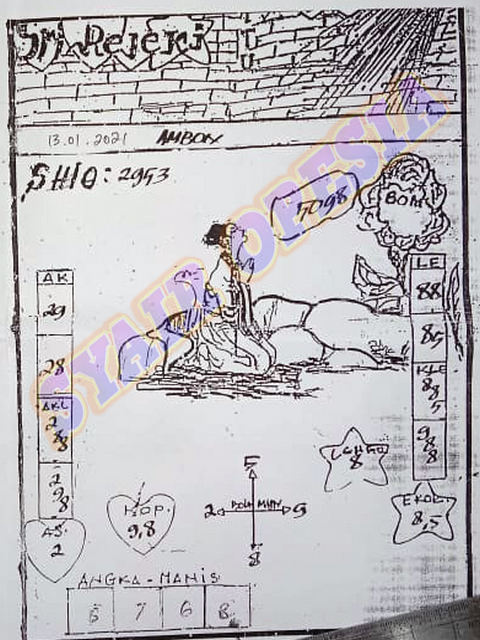 Sri Rejeki
13.01.2021 AMBON
SHIO: 2953
5098
BOM
SYAIR OPESIA
AK
29
28
AKL
2
8
8
2
9
8
AS.
2
LE
88
85
KLE
8
8
5
9
8
8
KOP.
9,8
5
2 POLA MAIN 9
8
8
EKOR
8,5
ANGKA-MANIS
5 7 6 8